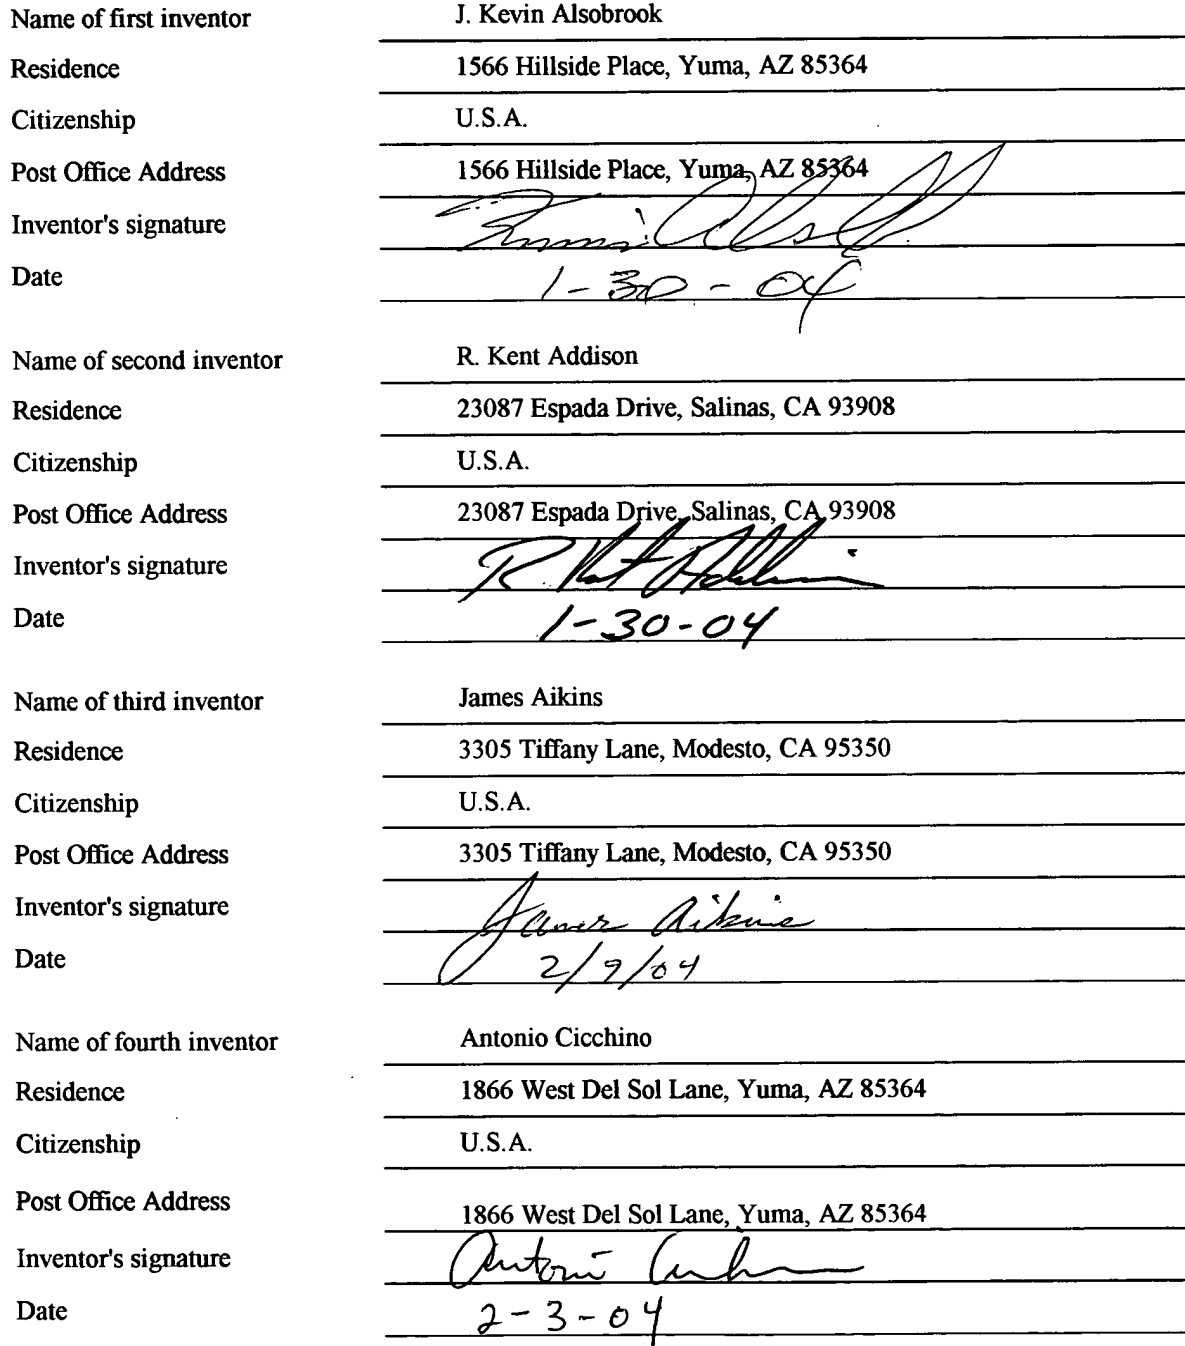 Name of first inventor J. Kevin Alsobrook
Residence 1566 Hillside Place, Yuma, AZ 85364
Citizenship U.S.A.
Post Office Address 1566 Hillside Place, Yuma, AZ 85364
Inventor's signature
Date 1-30-04
Name of second inventor R. Kent Addison
Residence 23087 Espada Drive, Salinas, CA 93908
Citizenship U.S.A.
Post Office Address 23087 Espada Drive, Salinas, CA 93908
Inventor's signature R. Kent Addison
Date 1-30-04
Name of third inventor James Aikins
Residence 3305 Tiffany Lane, Modesto, CA 95350
Citizenship U.S.A.
Post Office Address 3305 Tiffany Lane, Modesto, CA 95350
Inventor's signature James Aikins
Date 2/9/04
Name of fourth inventor Antonio Cicchino
Residence 1866 West Del Sol Lane, Yuma, AZ 85364
Citizenship U.S.A.
Post Office Address 1866 West Del Sol Lane, Yuma, AZ 85364
Inventor's signature
Date 2-3-04